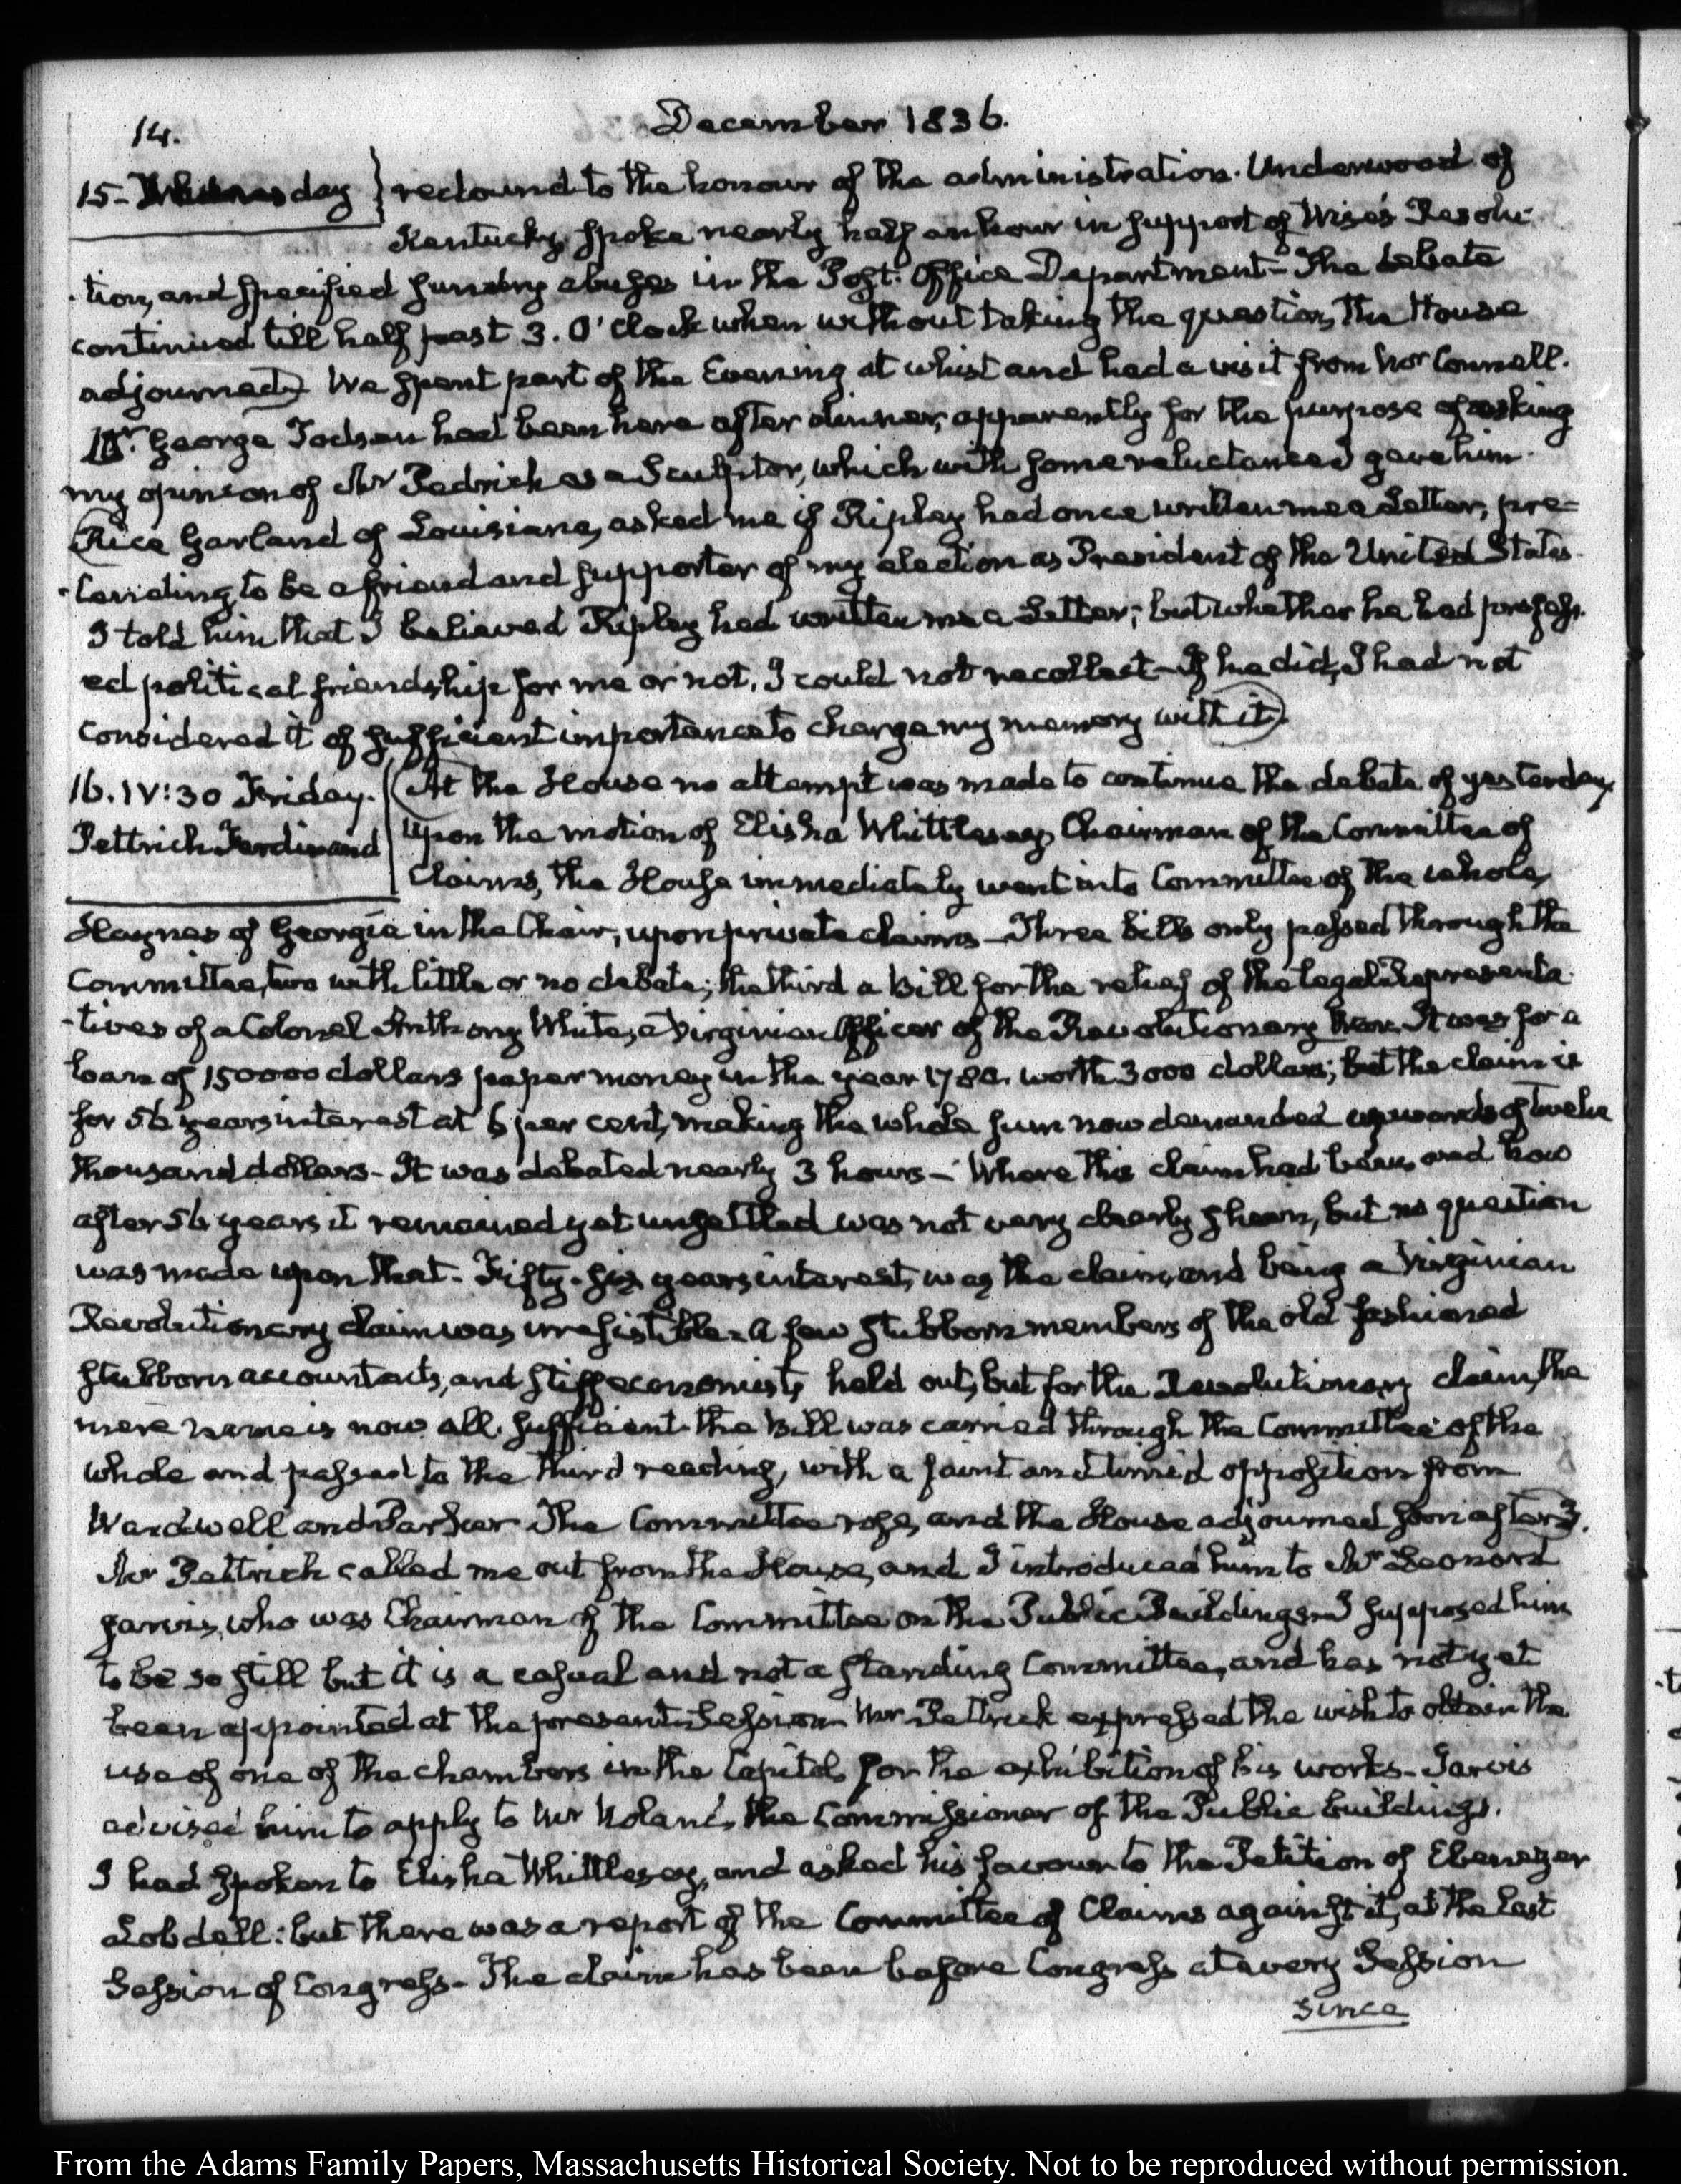 14.
December 1836.
15- day } redound to the honour of the administration. Underwood of
Kentucky, spoke nearly half an hour in support of Wise's Resolu-
-tion, and specified sundry abuses in the Post-Office Department- The debate
continued till half past 3. O'Clock when without taking the question, the House
adjourned) We spent part of the Evening at whist and had a visit from Mr Connell.
Mr George had been here after dinner, apparently for the purpose of asking
my opinion of Mr Pedrick as a Sculptor, which with some reluctance I gave him.
(Rice Garland of Louisiana, asked me if Ripley had once written me a Letter, pre=
-tending to be a friend and supporter of my election as President of the United States.
I told him that I believed Ripley had written me a Letter; but whether he had profess-
ed political friendship for me or not, I could not recollect- If he did, I had not
considered it of sufficient importance to charge my memory with it)
16. IV:30 Friday. (At the House no attempt was made to continue the debate of yesterday,
Pettrich Ferdinand upon the motion of Elisha Whittlesey, Chairman of the Committee of
Claims, the House immediately went into Committee of the whole,
Haynes of Georgia in the Chair, upon private claims- Three bills only passed through the
Committee, two with little or no debate; the third a Bill for the relief of the legal Representa-
-tives of a Colonel Anthony White, a Virginian Officer of the Revolutionary War. It was for a
loan of 150000 dollars paper money in the year 1780. worth 3000 dollars; but the claim is
for 56 years interest at 6 per cent, making the whole sum now demanded upwards of twelve
thousand dollars- It was debated nearly 3 hours- Where this claim had been, and how
after 56 years it remained yet unsettled was not very clearly shewn, but no question
was made upon that- Fifty-six years interest, was the claim, and being a Virginian
Revolutionary claim was irresistible- a few stubborn members of the old fashioned
stubborn accountants, and stiff economists, held out, but for the Revolutionary claim, the
mere name is now all sufficient- the Bill was carried through the Committee of the
whole and passed to the third reading, with a faint and timid opposition from
Wardwell and Parker- The Committee rose, and the House adjourned soon after 3.)
Mr Pettrich called me out from the House, and I introduced him to Mr Leonard
Jarvis, who was Chairman of the Committee on the Public Buildings- I supposed him
to be so still but it is a casual and not a standing Committee, and has not yet
been appointed at the present Session- Mr Pettrick expressed the wish to obtain the
use of one of the chambers in the Capitol, for the exhibition of his works- Jarvis
advised him to apply to Mr Noland, the Commissioner of the Public buildings.
I had spoken to Elisha Whittlesey, and asked his favour to the Petition of Ebenezer
Lobdell: but there was a report of the Committee of Claims against it, at the last
Session of Congress- The claim has been before Congress at every Session
since
From the Adams Family Papers, Massachusetts Historical Society. Not to be reproduced without permission.